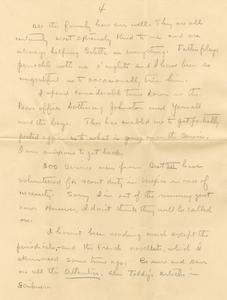 4
All the family here are well. They are all
certainly most extremely kind to me and are
always helping Edith in everything. Father plays
pinochle with me o' nights and I have been so
ungrateful as to occasionally beat him.
I spend considerable time down in the
office bothering Johnston and Yarnall
and the boys. This has enabled me to get
posted as to what is going on in the Service.
I am anxious to get back.
300 Service men from have
volunteered for scout duty in Mexico in case of
necessity. Sorry I'm out of the running just
now. However, I don't think they will be called
on.
I haven't been reading much except the
periodicals, and the French novelists, which I
mentioned some time ago. Be sure and save
me all the Atlantics, also Teddy's articles in
Scribners